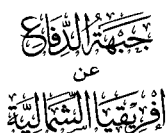 جَبْهَةُ الدِّفَاعِ
عن
إفْرِيقْيَا الشَّمَالِيَّةِ